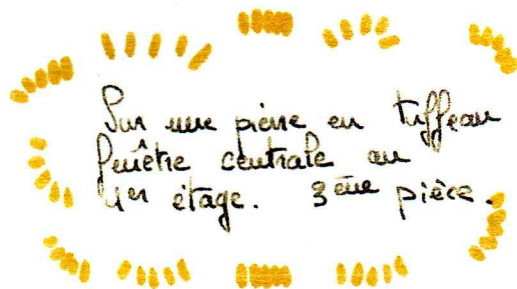 Sur une pierre en tuffeau
fenêtre centrale au
1er étage. 3ème pièce.